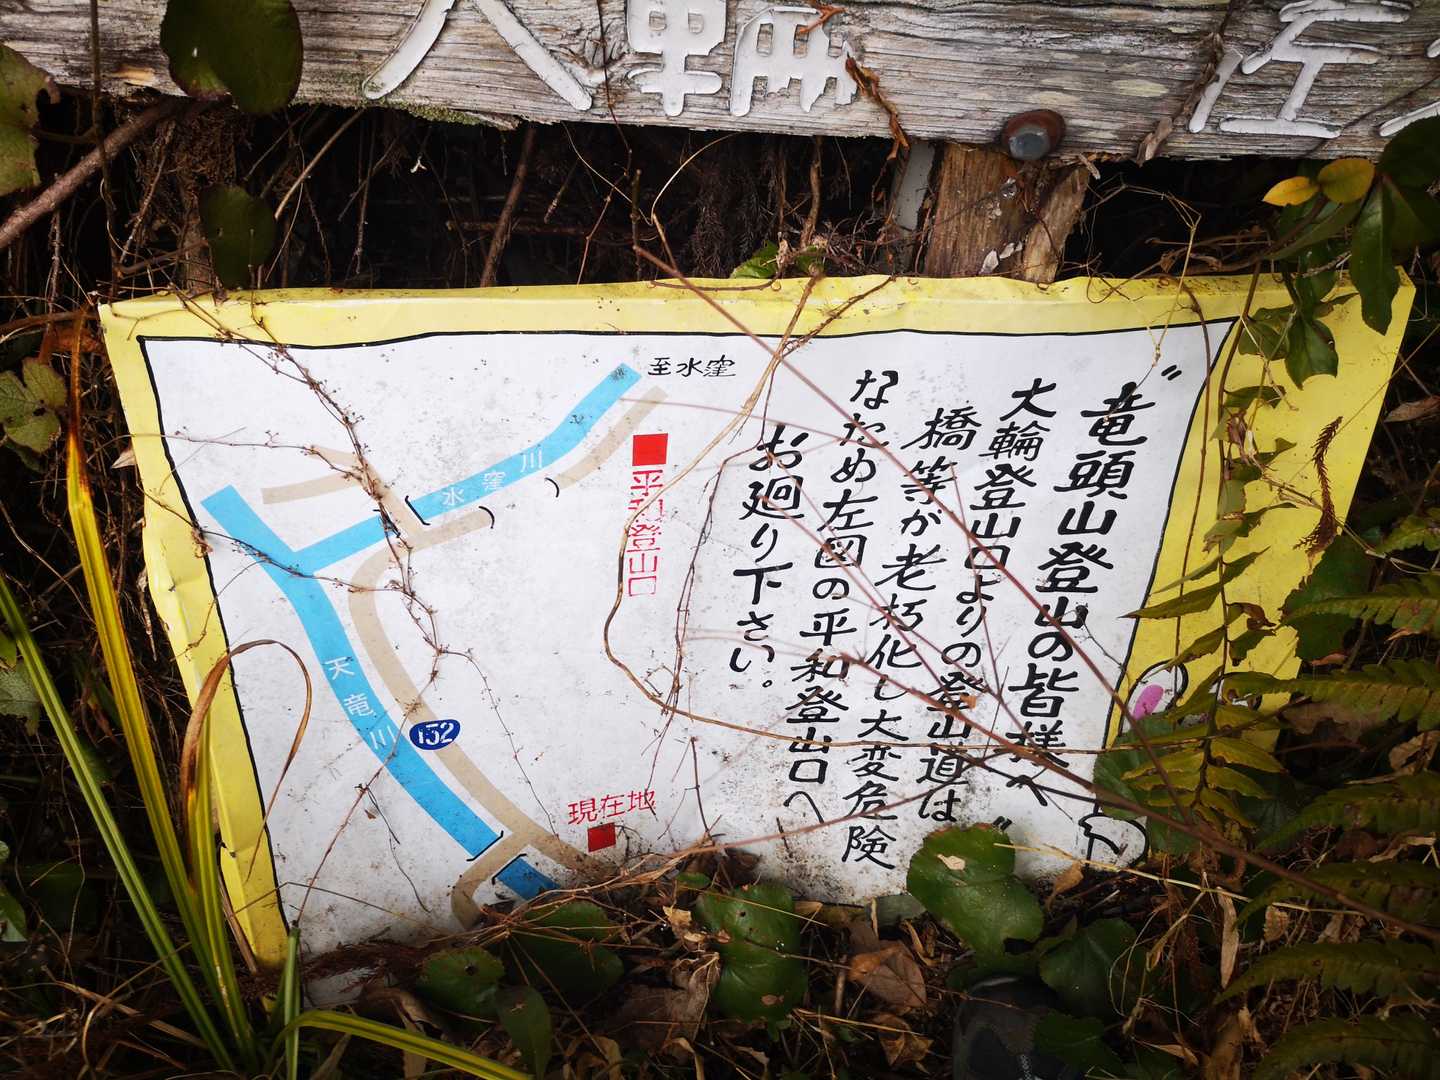 大輪
左
〝竜頭山登山の皆様へ〟
大輪登山口よりの登山道は
橋等が老朽化し大変危険
なため左図の平和登山口へ
お廻り下さい。
至水窪
水窪川
平和登山口
天竜川
152
現在地